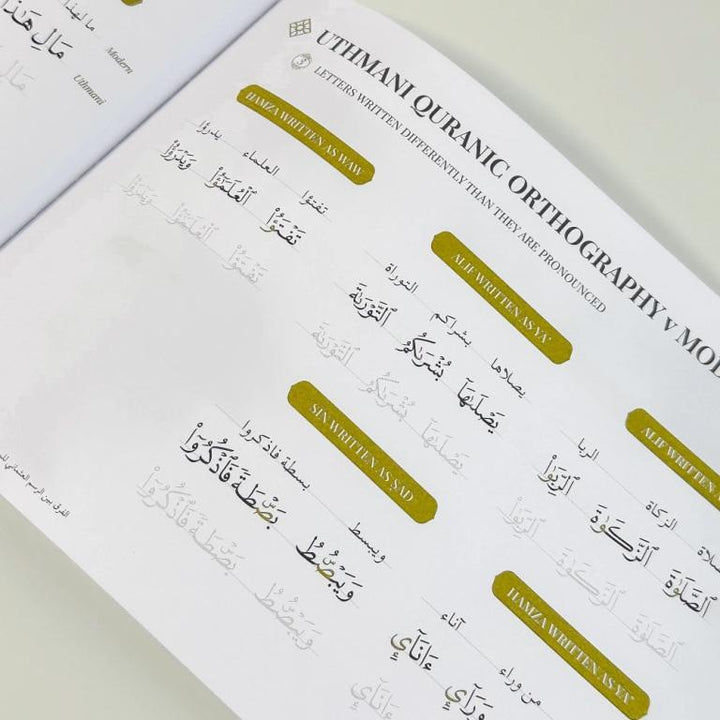 مال هذا
مَالِ هَٰذَا
Modern
Uthmani
UTHMANI QURANIC ORTHOGRAPHY v MOD
3 LETTERS WRITTEN DIFFERENTLY THAN THEY ARE PRONOUNCED
HAMZA WRITTEN AS WAW
تفتؤا العلماء يدرؤا
تَفْتَؤُا۟ ٱلْعُلَمَٰٓؤُا۟ وَيَدْرَؤُا۟
تَفْتَؤُا۟ ٱلْعُلَمَٰٓؤُا۟ وَيَدْرَؤُا۟
ALIF WRITTEN AS YA'
يصلاها بشراكم التوراة
يَصْلَىٰهَا بُشْرَىٰكُمُ ٱلتَّوْرَىٰةَ
يَصْلَىٰهَا بُشْرَىٰكُمُ ٱلتَّوْرَىٰةَ
SIN WRITTEN AS ṢAD
ويبسط بسطة فاذكروا
وَيَبْصُۜطُ بَصْۜطَةً فَٱذْكُرُوٓا۟
وَيَبْصُۜطُ بَصْۜطَةً فَٱذْكُرُوٓا۟
ALIF WRITTEN A
الصلاة الزكاة الربا
ٱلصَّلَوٰةَ ٱلزَّكَوٰةَ ٱلرِّبَوٰا۟
ٱلصَّلَوٰةَ ٱلزَّكَوٰةَ ٱلرِّبَوٰا۟
HAMZA WRITTEN AS YA'
من وراء آناء
وَرَآئِ ءَانَآئِ
ءَانَآئِ
الفرق بين الرسم العثماني